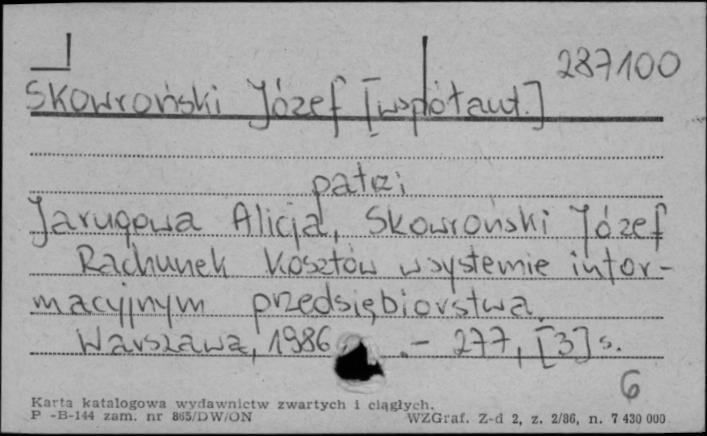 287100
Skowroński Józef [współaut.]
patrz:
Jarugowa Alicja, Skowroński Józef
Rachunek kosztów w systemie infor-
macyjnym przedsiębiorstwa.
Warszawa, 1986 .- 277, [3] s.
6
Karta katalogowa wydawnictw zwartych i ciągłych.
P -B-144 zam. nr 865/DW/ON WZGraf. Z-d 2, z. 2/86, n. 7 430 000